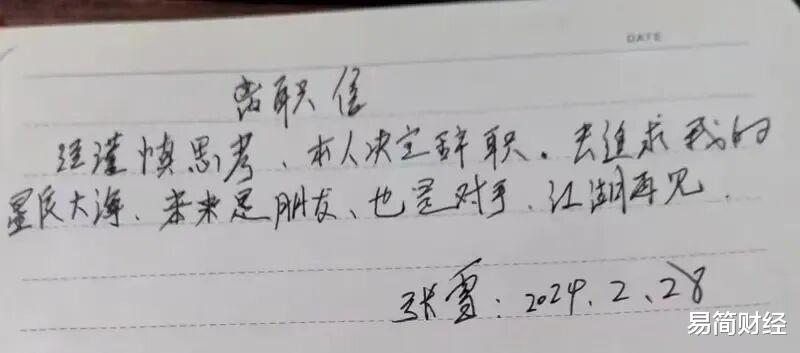 DATE
离职信
经谨慎思考、本人决定辞职。去追求我的
星辰大海、未来是朋友、也是对手、江湖再见.
张雪.2024.2.28
易简财经